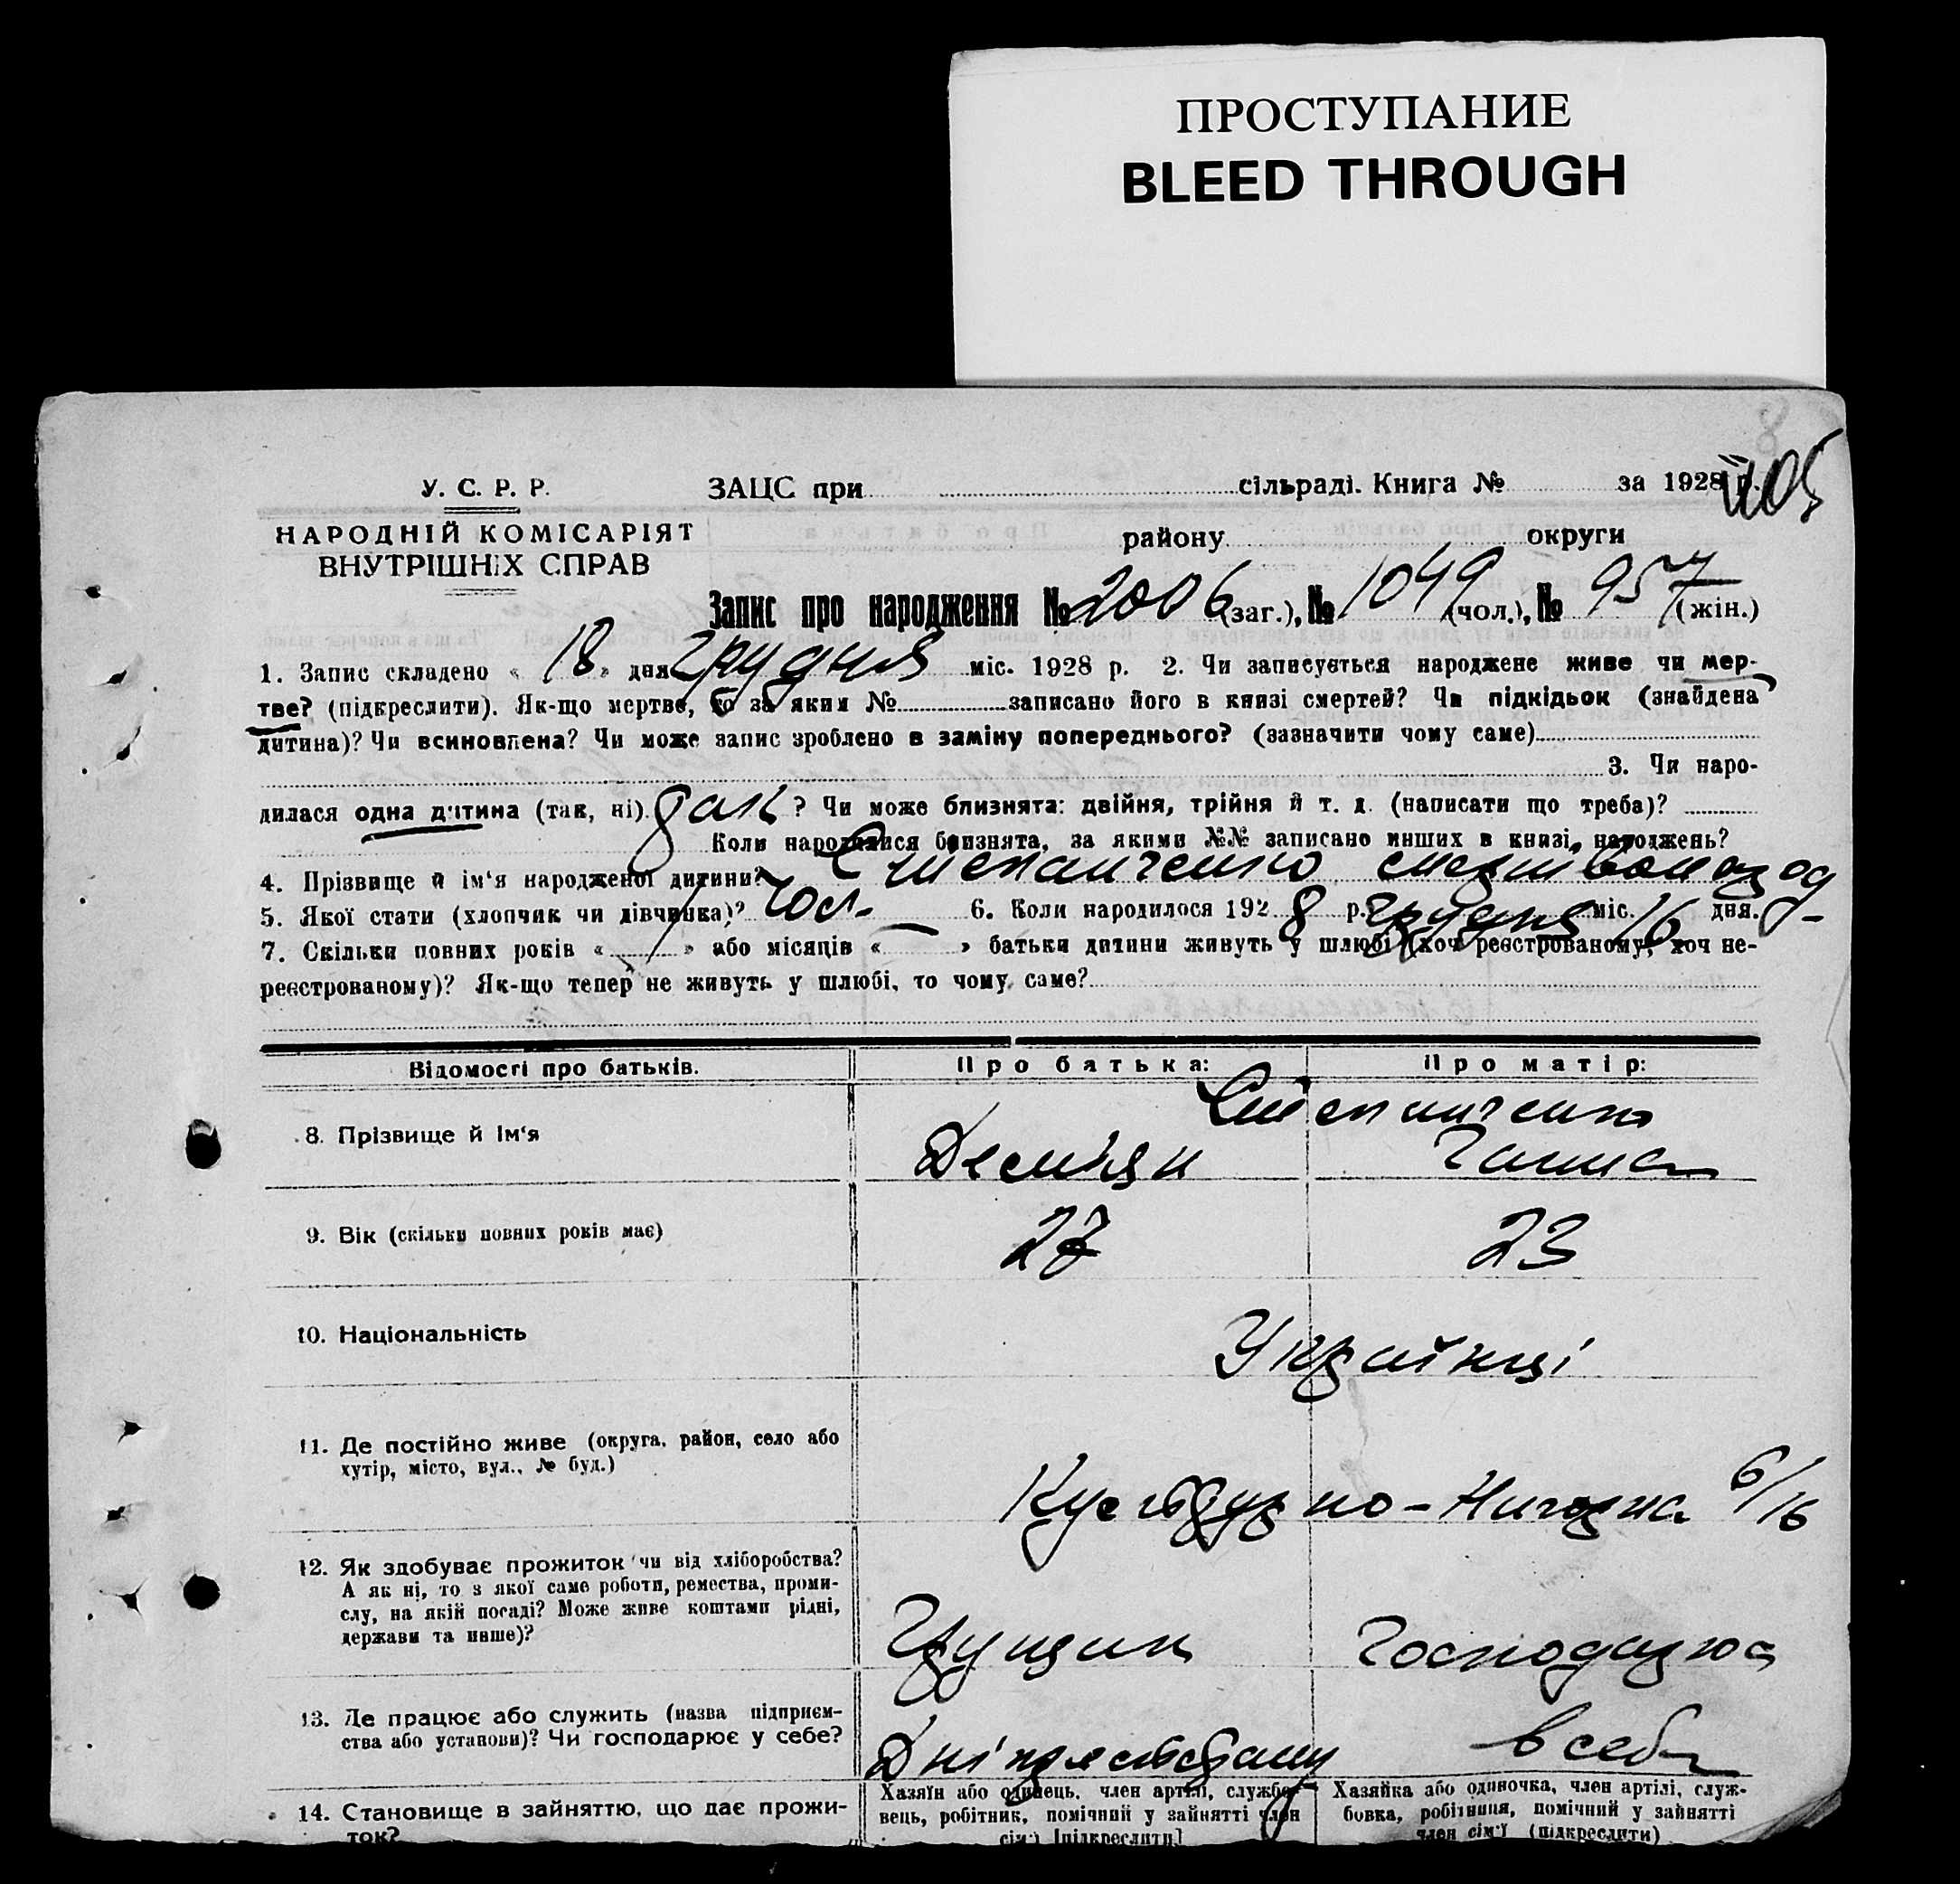 ПРОСТУПАНИЕ
BLEED THROUGH
У. С. Р. Р. ЗАЦС при сільраді. Книга № за 1928 р.
НАРОДНІЙ КОМІСАРІЯТ району округи
ВНУТРІШНІХ СПРАВ
Запис про народження № 2006 (заг.), № 1049 (чол.), № 957 (жін.)
1. Запис складено « 18 » дня грудня міс. 1928 р. 2. Чи записується народжене живе чи мер-
тве? (підкреслити). Як-що мертве, то за яким № записано його в книзі смертей? Чи підкідьок (знайдена
дитина)? Чи всиновлена? Чи може запис зроблено в заміну попереднього? (зазначити чому саме)
3. Чи наро-
дилася одна дитина (так, ні). так ? Чи може близнята: двійня, трійня й т. д. (написати що треба)?
Коли народилися близнята, за якими №№ записано инших в книзі народжень?
4. Прізвище й ім'я народженої дитини? Степанченко
5. Якої стати (хлопчик чи дівчинка)? Чол. 6. Коли народилося 192 8 р. грудня міс. 16 дня.
7. Скільки повних років « 1 » або місяців « » батьки дитини живуть у шлюбі (хоч реєстрованому, хоч не-
реєстрованому)? Як-що тепер не живуть у шлюбі, то чому саме?
Відомості про батьків. Про батька: Про матір:
Степанченко
8. Прізвище й ім'я Дем'ян Ганна
9. Вік (скільки повних років має) 27 23
10. Національність Українці
11. Де постійно живе (округа, район, село або
хутір, місто, вул., № буд.)
6/16
12. Як здобуває прожиток чи від хліборобства?
А як ні, то з якої саме роботи, ремества, проми-
слу, на якій посаді? Може живе коштами рідні,
держави та инше)?
Грущик Господарює
13. Де працює або служить (назва підприєм-
ства або установи)? Чи господарює у себе?
в себе
14. Становище в зайняттю, що дає прожи-
ток?
Хазяїн або одинець, член артілі, службо-
вець, робітник, помічний у зайнятті член
сім'ї [підкреслити]
Хазяйка або одиночка, член артілі, служ-
бовка, робітниця, помічний у зайнятті
член сім'ї (підкреслити)